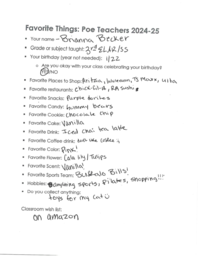 Favorite Things: Poe Teachers 2024-25
• Your name - Brianna Becker
• Grade or subject taught: 3rd ELAR/SS
• Your birthday (year not needed): 1/22
o Are you okay with your class celebrating your birthday?
YES/NO
• Favorite Places to Shop: Aritzia, lululemon, TJ Maxx, Ulta
• Favorite restaurants: Chick-fil-A, RA Sushi
• Favorite Snacks: Purple Doritos
• Favorite Candy: Gummy Bears
• Favorite Cookie: Chocolate chip
• Favorite Cake: Vanilla
• Favorite Drink: Iced chai tea latte
• Favorite Coffee drink: don't like coffee
• Favorite Color: Pink!
• Favorite Flower: Calla lily/Tulips
• Favorite Scent: Vanilla!
• Favorite Sports Team: Buffalo Bills!
• Hobbies: anything sports, pilates, shopping!!!
• Do you collect anything:
toys for my cat
Classroom wish list:
on amazon